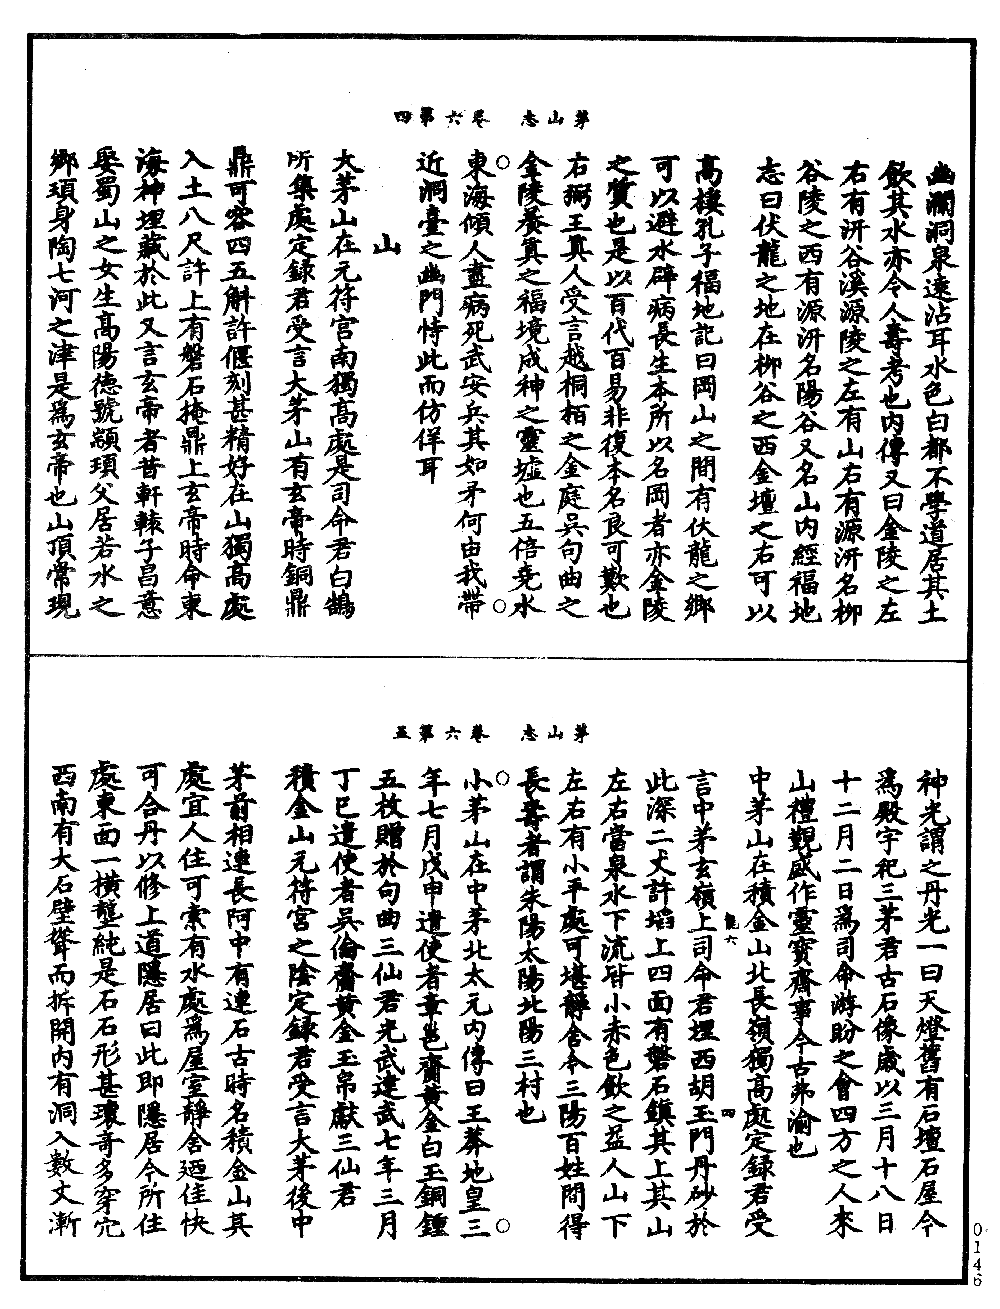 茅山志　卷六第四
幽澗洞泉遠沾耳水色白都不學道居其土
飲其水亦令人壽考也內傳又曰金陵之左
右有汧谷溪源陵之左有山右有源汧名柳
谷陵之西有源汧名陽谷又名山內經福地
志曰伏龍之地在柳谷之西金壇之右可以
高棲孔子福地記曰岡山之間有伏龍之鄉
可以避水辟病長生本所以名岡者亦金陵
之質也是以百代百易非復本名良可歎也
右弼王真人受言越桐栢之金庭吳句曲之
金陵養真之福境成神之靈墟也五倍堯水
東海傾人盡病死武安兵其如矛何由我帶
近洞臺之幽門恃此而仿佯耳
山
大茅山在元符宮南獨高處是司命君白鵠
所集處定錄君受言大茅山有玄帝時銅鼎
鼎可容四五斛許偃刻甚精好在山獨高處
入土八尺許上有磐石掩鼎上玄帝時命東
海神埋藏於此又言玄帝者昔軒轅子昌意
娶蜀山之女生高陽德號顓頊父居若水之
鄉頊身陶七河之津是爲玄帝也山頂常現
茅山志　卷六第五
神光謂之丹光一曰天燈舊有石壇石屋今
爲殿宇祀三茅君古石像歲以三月十八日
十二月二日爲司命游盼之會四方之人來
山禮觀盛作靈寶齋事今古弗渝也
中茅山在積金山北長嶺獨高處定錄君受
言中茅玄嶺上司命君埋西胡玉門丹砂於
此深二丈許壔上四面有磐石鎮其上其山
左右當泉水下流皆小赤色飲之益人山下
左右有小平處可堪靜舍今三陽百姓間得
長壽者謂朱陽太陽北陽三村也
小茅山在中茅北太元內傳曰王莽地皇三
年七月戊申遣使者章邕齎黃金白玉銅鍾
五枚贈於句曲三仙君光武建武七年三月
丁巳遣使者吳倫齎黃金玉帛獻三仙君
積金山元符宮之陰定錄君受言大茅後中
茅前相連長阿中有連石古時名積金山其
處宜人住可索有水處爲屋室靜舍廼佳快
可合丹以修上道隱居曰此即隱居今所住
處東面一橫壟純是石石形甚瓌奇多穿穴
西南有大石壁聳而拆開內有洞入數丈漸
四
0146